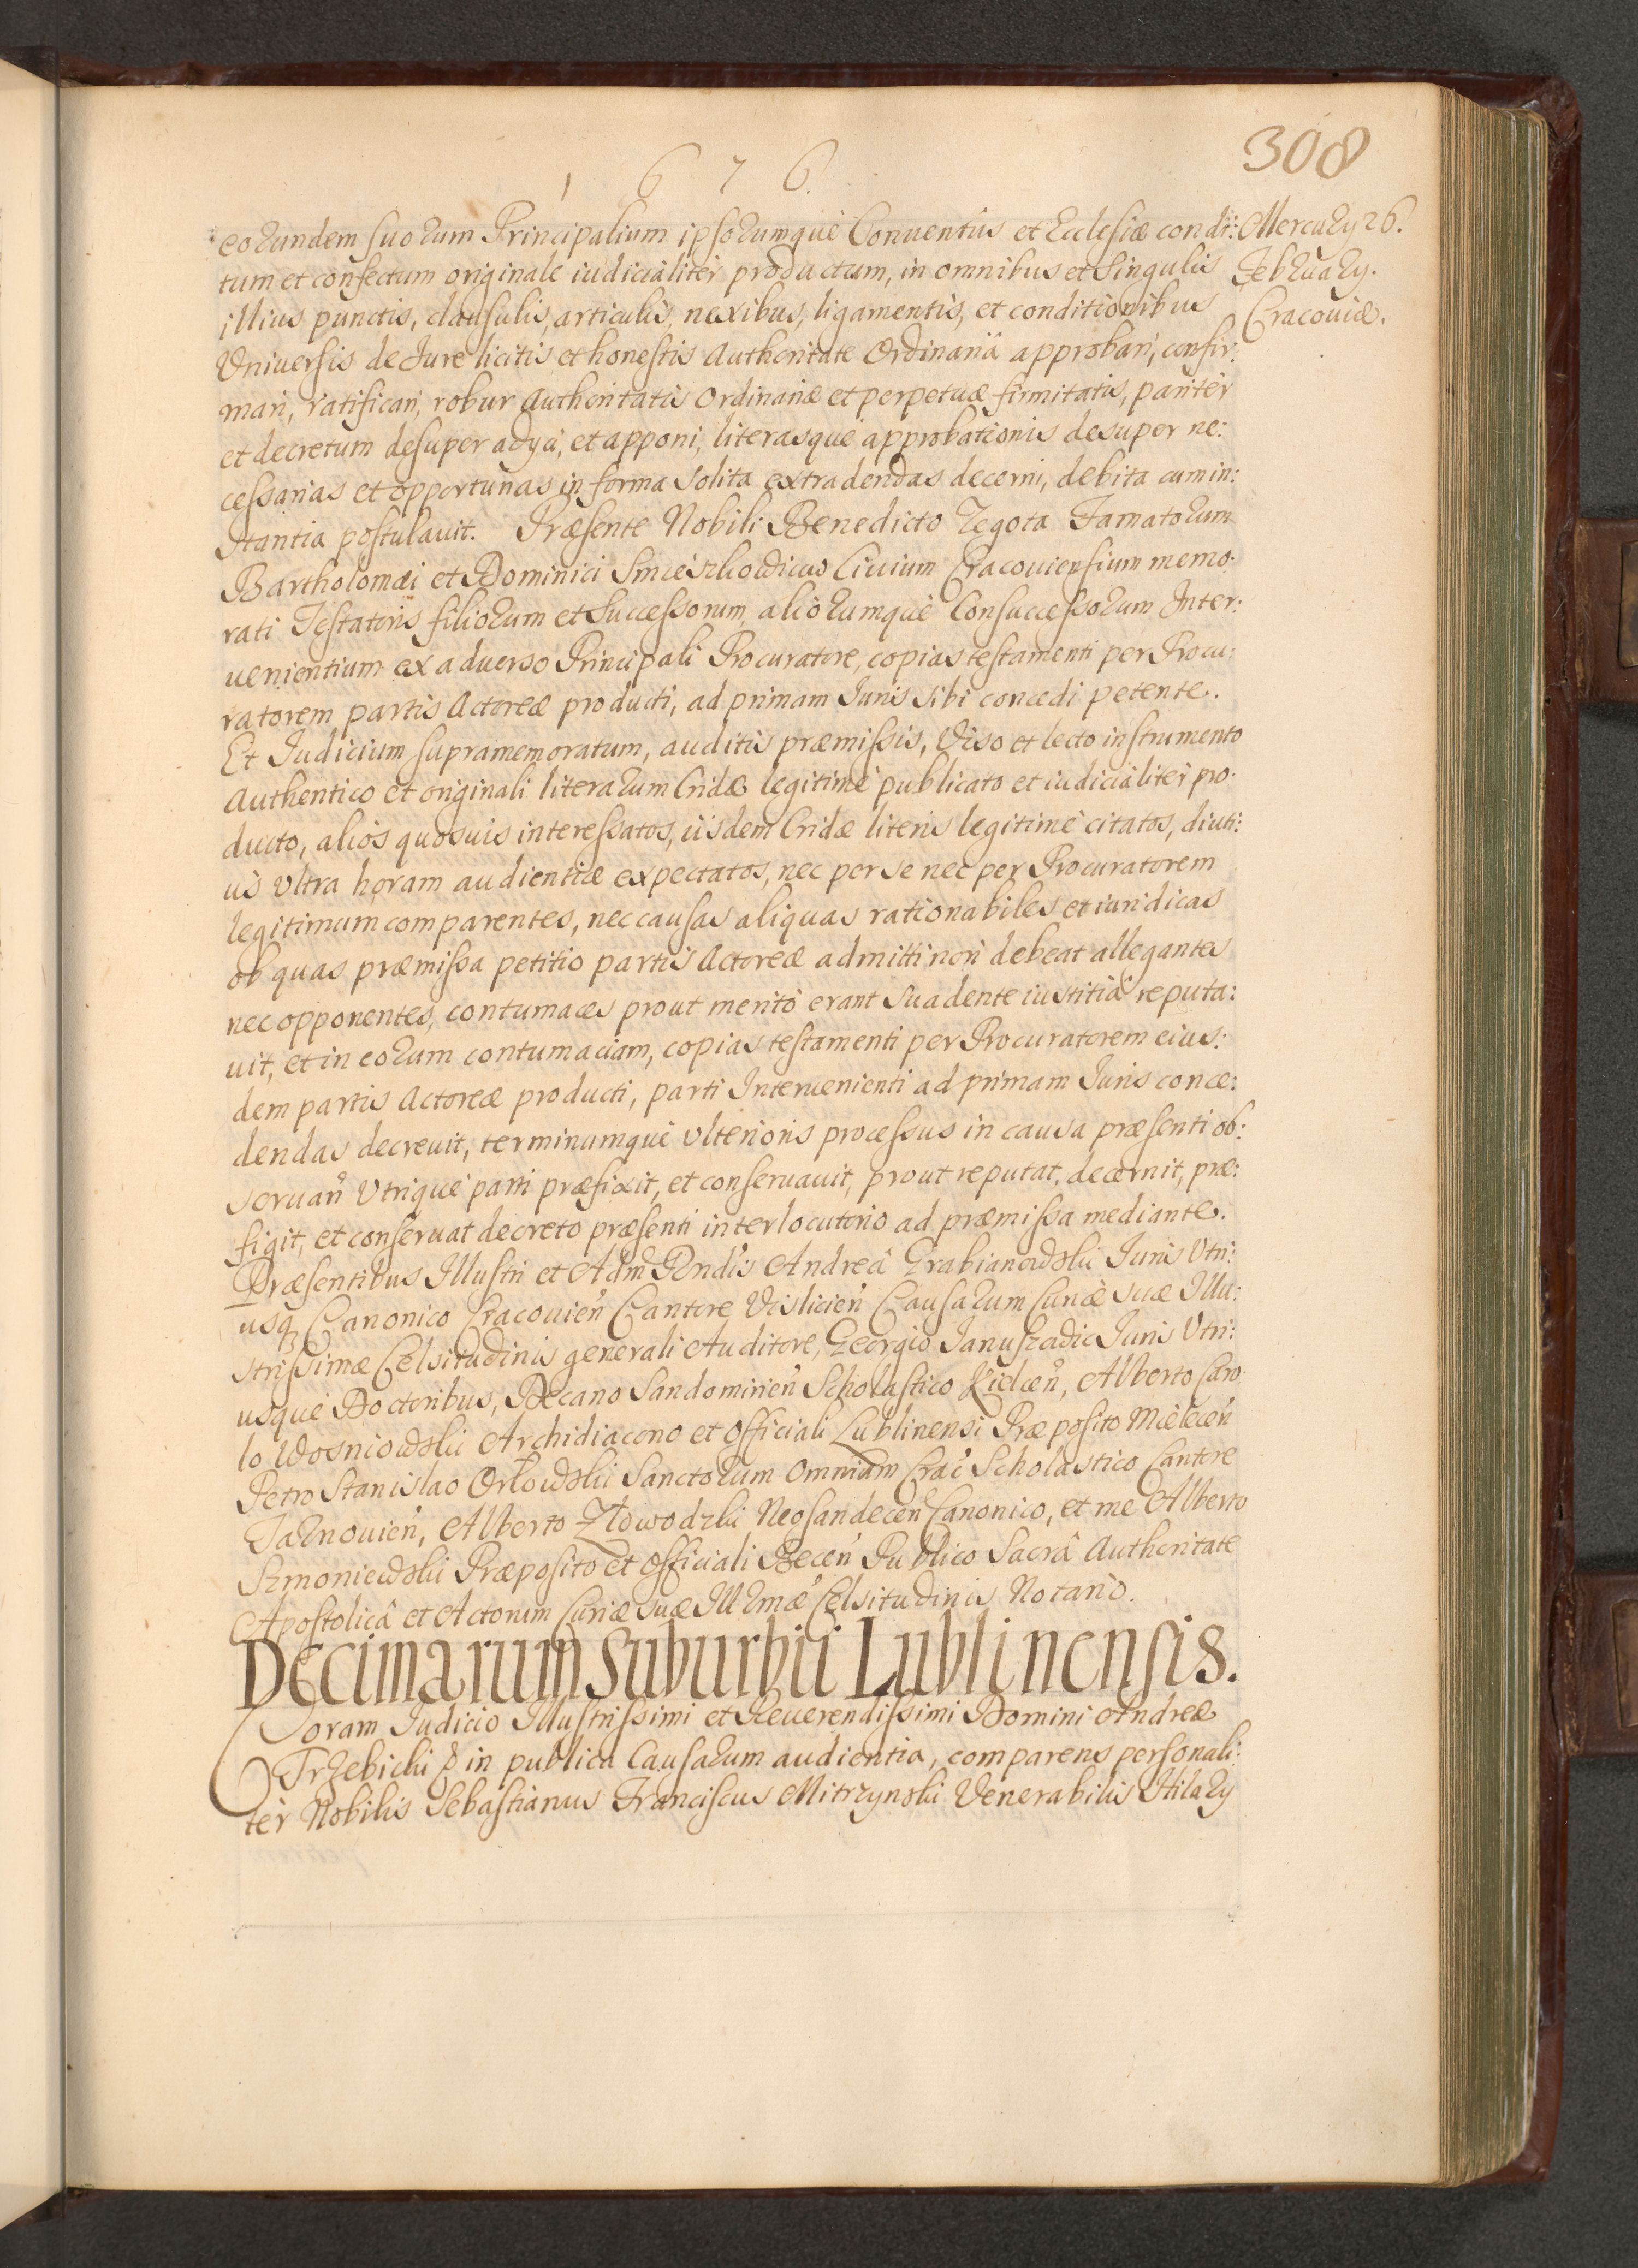 308
1 6 7 6.
eorundem suorum Principalium ipsorumquè Conuentûs et Ecclesiæ condi:
Mercury 26.
tum et confectum originale iudicialitèr productum, in omnibus et Singulis
Februarÿ.
illius punctis, clausulis, articulis, nexibus, ligamentis, et conditionibus
Cracouiæ.
Vniuersis de Jure licitis et honestis Authoritate Ordinariâ approbari, confir:
mari, ratificari, robur authoritatis Ordinariæ et perpetuæ firmitatis, paritèr
et decretum desuper adÿci, et apponi, literasquè approbationis desuper ne:
cessarias et opportunas in forma solita extradendas decerni, debita cum in:
stantia postulauit. Præsente Nobili Benedicto Zegota Famatorum
Bartholomæi et Dominici Ciuium Cracouiensium memo:
rati Testatoris filiorum et Successorum, aliorumquè Consuccessorum Inter:
uenientium ex aduerso Principali Procuratore, copias testamenti per Procu:
ratorem partis Actoreæ producti, ad primam Iuris sibi concedi petente.
Et Iudicium supramemoratum, auditis præmissis, Viso et lecto instrumento
Authentico et originali literarum Cridæ legitimè publicato et iudicialitèr pro:
ducto, aliós quosuis interessatos, iisdem Cridæ literis legitimè citatos, diuti:
ùs vltra horam audientiæ expectatos, nec per se nec per Procuratorem
legitimum comparentes, nec causas aliquas rationabiles et iuridicas
ob quas præmissa petitio partis Actoreæ admitti non debeat allegantes
nec opponentes, contumaces prout meritò erant Suadente iustitiâ reputa:
uit, et in eorum contumaciam, copias testamenti per Procuratorem eius:
dem partis Actoreæ producti, parti Interuenienti ad primam Iuris conce:
dendas decreuit, terminumquè vlterioris processus in causa præsenti ob:
seruarī Vtriquè parti præfixit, et conseruauit, prout reputat, decernit, præ:
figit, et conseruat decreto præsenti interlocutorio ad præmissa mediante.
Præsentibus Illustri et Adm Rndis Andreâ Grabianowski Iuris Vtri:
usq Canonico Cracouień Cantore Vislicień Causarum Curiæ suæ Illu:
strissimæ Celsitudinis generali Auditore, Georgio Januszadic Iuris Vtri:
usquè Doctoribus, Decano Sandomirień Scholastico Kielceń, Alberto Caro:
lo Wosniowski Archidiacono et Officiali Lublinensi Præposito Mieleceń
Petro Stanislao Orłowski Sanctorum Omnium Crac Scholastico Cantore
Tarnouień, Alberto Zławodzki Neosandeceń Canonico, et me Alberto
Szmoniewski Præposito et Officiali Beceń Publico Sacrâ Authoritate
Apostolicâ et Actorum Curiæ suæ Illrmæ Celsitudinis Notario.
Decimarum Suburbii Lublinensis.
Coram Iudicio Illustrissimi et Reuerendissimi Domini Andreæ
Trzebicki & in publica Causarum audientia, comparens personali:
tèr Nobilis Sebastianus Franciscus Mitrzynski Venerabilis Hilarÿ